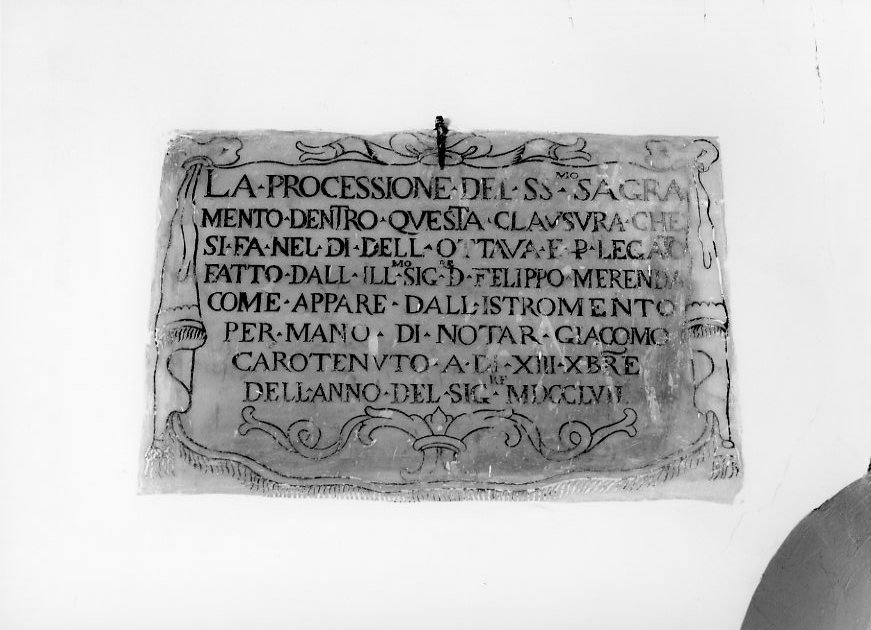 LA·PROCESSIONE·DEL·SS·MO·SAGRA
MENTO·DENTRO·QVESTA·CLAVSVRA·CHE
SI·FA·NEL·DI·DELL·OTTAVA·E·P·LEGATO
FATTO·DALL·ILL·MO·SIG·RE·D·FELIPPO·MERENDA
COME·APPARE·DALL·ISTROMENTO
PER·MANO·DI·NOTAR·GIACOMO
CAROTENVTO·A·DI·XIII·XBRE
DELL·ANNO·DEL·SIG·RE·MDCCLVII